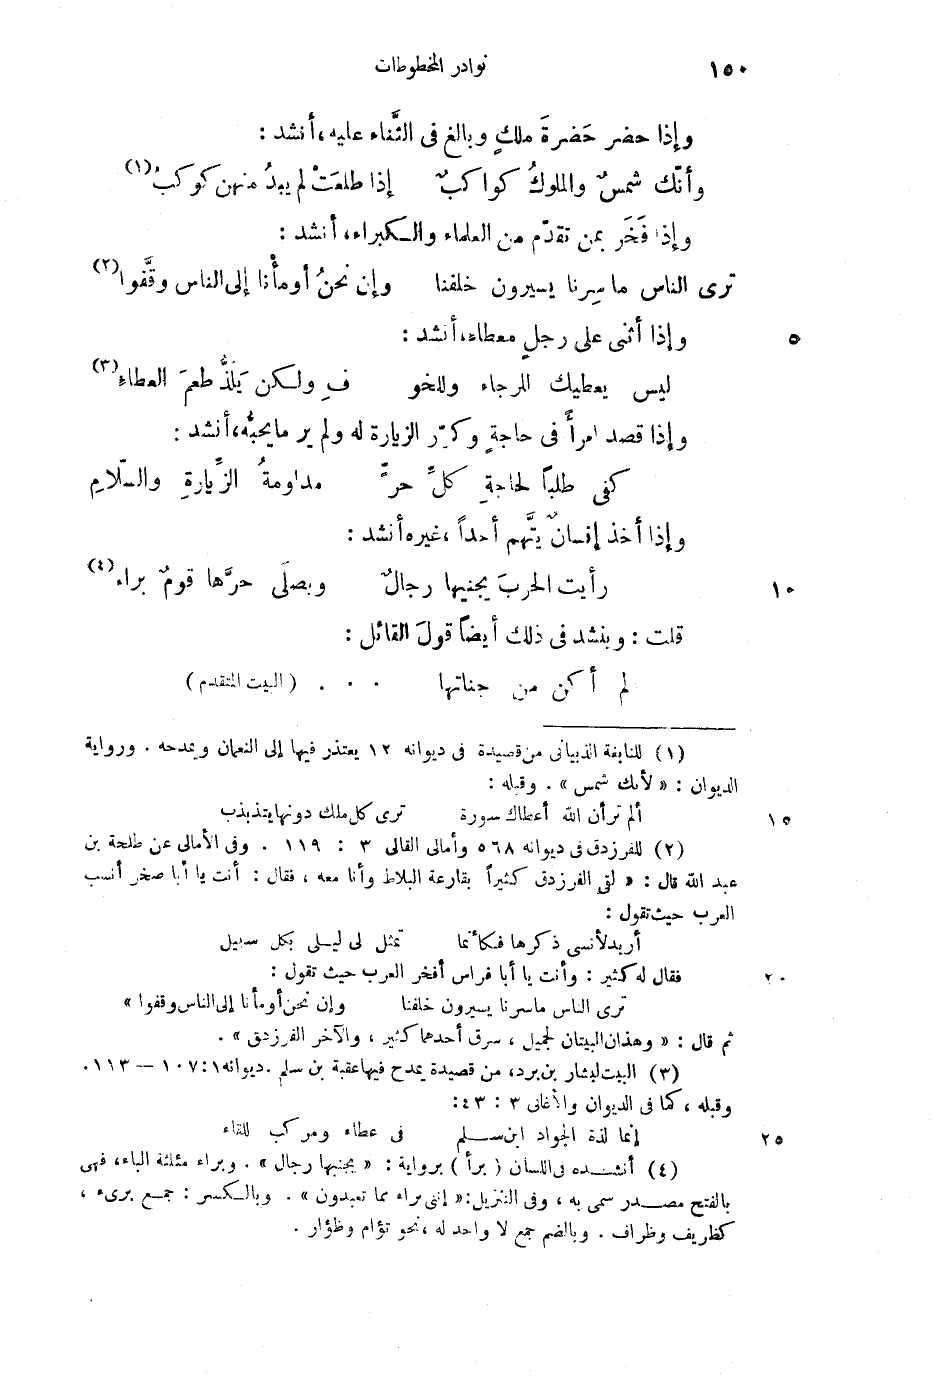 ١٥٠ نوادر المخطوطات
وإذا حضر حَضرةَ ملكٍ وبالغ فى الثَّناء عليه، أنشد :
وأنّك شمسٌ والملوكُ كواكبٌ إذا طلعَتْ لم يبدُ منهن كوكبُ (١)
وإذا فَخَر بمن تقدّم من العلماء والكبراء، أنشد :
ترى الناس ما سِرنا يسيرون خلفنا وإن نحنُ أومأْنا إلى الناس وقَّفوا (٢)
وإذا أثنى على رجلٍ معطاء، أنشد : ٥
ليس يعطيك للرجاء وللخو فِ ولكن يَلَذُّ طعمَ العطاء (٣)
وإذا قصد امرأً فى حاجةٍ وكرّر الزيارة له ولم ير ما يحبُّه، أنشد :
كفى طلبًا لحاجةِ كلِّ حرٍّ مداومةُ الزِّيارةِ والسّلامِ
وإذا أخذ إنسانٌ يتَّهم أحداً ، غيره أنشد :
رأيت الحربَ يجنيها رجالٌ ويصلَى حرَّها قومٌ براء (٤) ١٠
قلت : وينشد فى ذلك أيضاً قولَ القائل :
لم أكن من جناتها . . . ( البيت المتقدم )
(١) للنابغة الذبيانى من قصيدة فى ديوانه ١٢ يعتذر فيها إلى النعمان ويمدحه . ورواية
الديوان : « لأنك شمس » . وقبله :
ألم تر أن الله أعطاك سورة ترى كل ملك دونها يتذبذب ١٥
(٢) للفرزدق فى ديوانه ٥٦٨ وأمالى القالى ٣ : ١١٩ . وفى الأمالى عن طلحة بن
عبد الله قال : « لقى الفرزدق كثيراً بقارعة البلاط وأنا معه ، فقال : أنت يا أبا صخر أنسب
العرب حيث تقول :
أريد لأنسى ذكرها فكأنما تمثل لى ليلى بكل سبيل
فقال له كثير : وأنت يا أبا فراس أفخر العرب حيث تقول : ٢٠
ترى الناس ما سرنا يسيرون خلفنا وإن نحن أومأنا إلى الناس وقفوا »
ثم قال : « وهذان البيتان لجميل ، سرق أحدهما كثير ، والآخر الفرزدق » .
(٣) البيت لبشار بن برد، من قصيدة يمدح فيها عقبة بن سلم . ديوانه ١ : ١٠٧ — ١١٣ .
وقبله ، كما فى الديوان والأغانى ٣ : ٤٣ :
إنما لذة الجواد ابن سلم فى عطاء ومركب للقاء ٢٥
(٤) أنشده فى اللسان ( برأ ) برواية : « يجنبها رجال » . وبراء مثلثة الباء، فهى
بالفتح مصدر سمى به ، وفى التنزيل: « إننى براء مما تعبدون » . وبالكسر : جمع برىء ،
كظريف وظراف . وبالضم جمع لا واحد له ، نحو تؤام وظؤار .